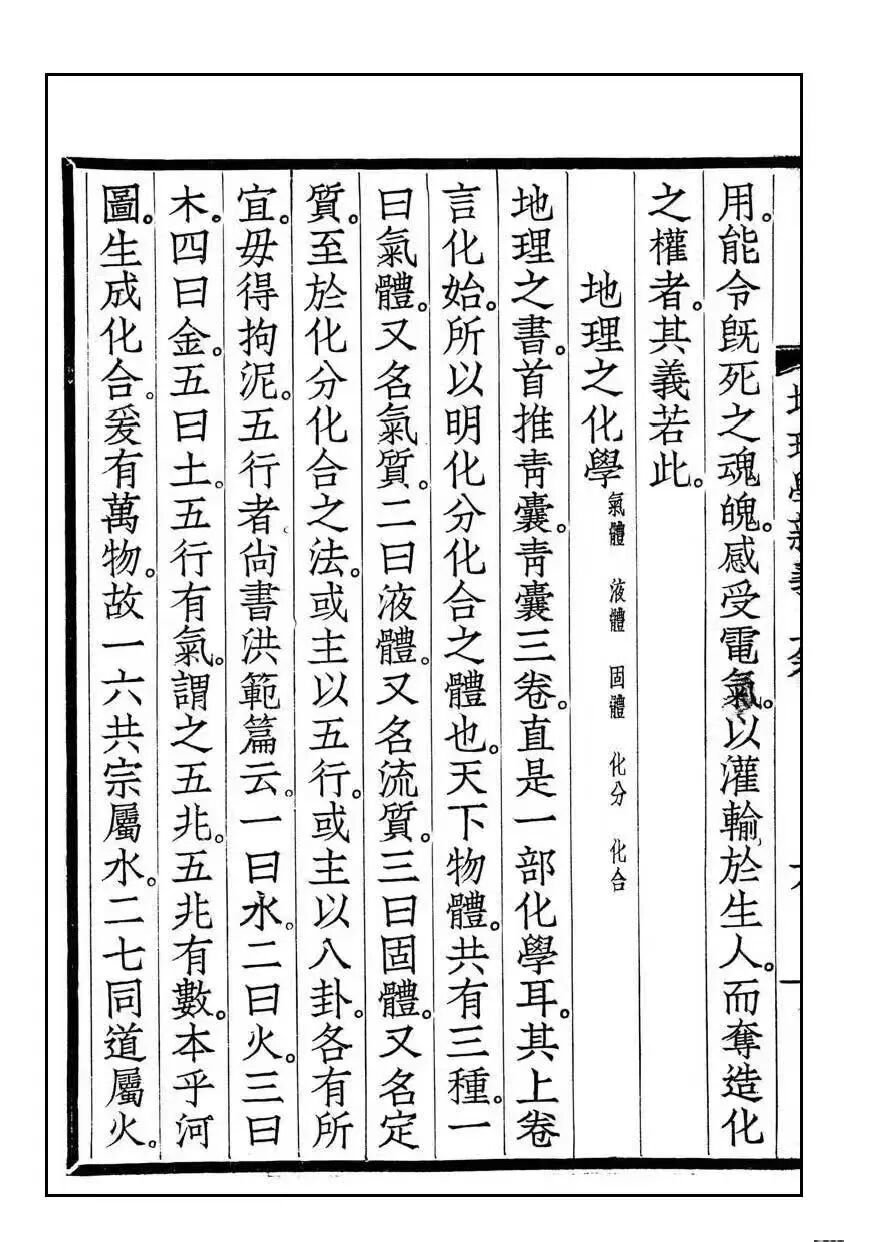 用。能令旣死之魂魄。感受電氣。以灌輸於生人。而奪造化
之權者。其義若此。
地理之化學 氣體 液體 固體 化分 化合
地理之書。首推靑囊。靑囊三卷。直是一部化學耳。其上卷
言化始。所以明化分化合之體也。天下物體。共有三種。一
曰氣體。又名氣質。二曰液體。又名流質。三曰固體。又名定
質。至於化分化合之法。或主以五行。或主以八卦。各有所
宜。毋得拘泥。五行者尙書洪範篇云。一曰水。二曰火。三曰
木。四曰金。五曰土。五行有氣。謂之五兆。五兆有數。本乎河
圖。生成化合。爰有萬物。故一六共宗屬水。二七同道屬火。